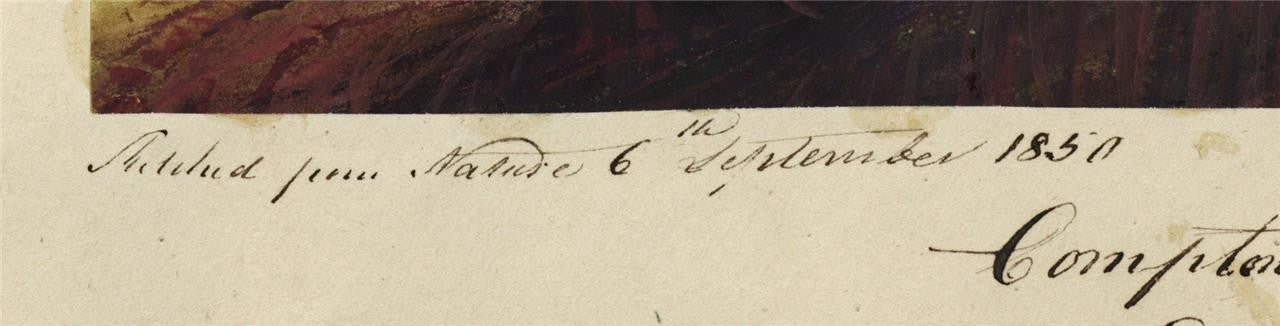 Sketched from Nature 6th September 1850
Compton